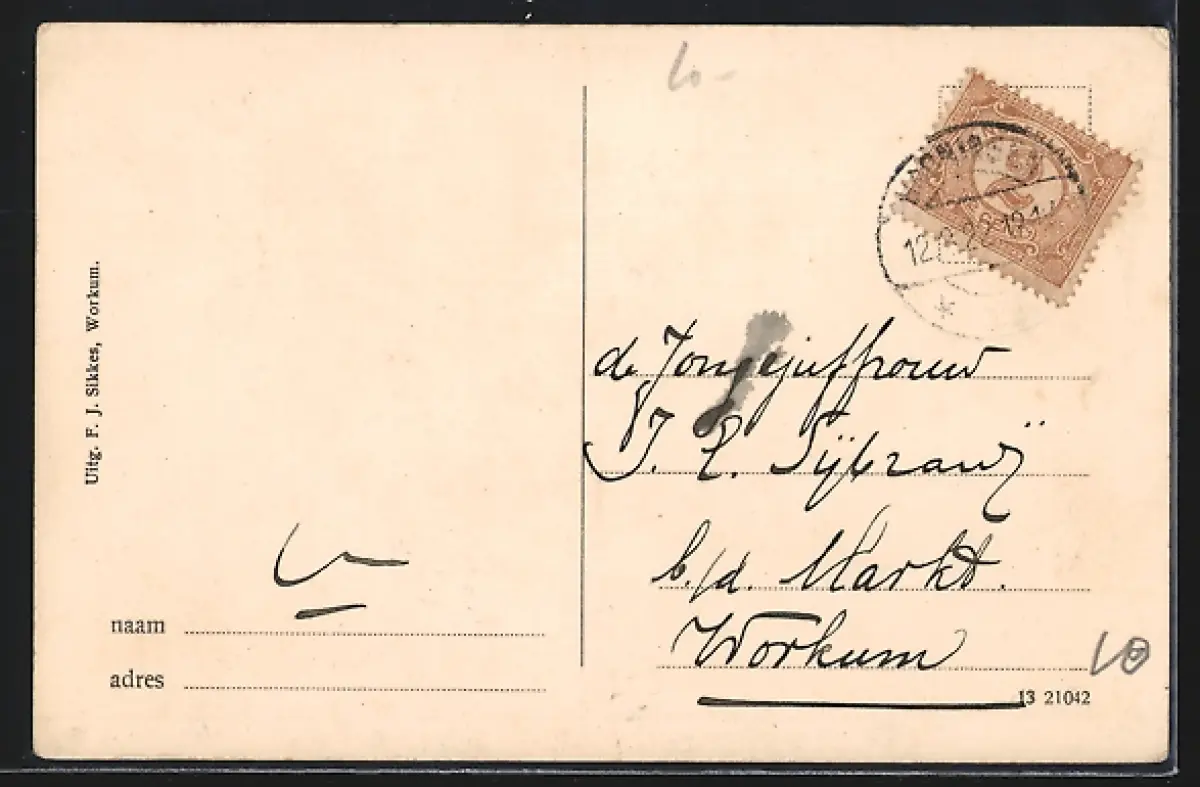 Uitg. F. J. Sikkes, Workum.
naam
adres
10-
de Jongejuffrouw
J. L. Sijbrandij
b./d. Markt.
Workum
10
13 21042